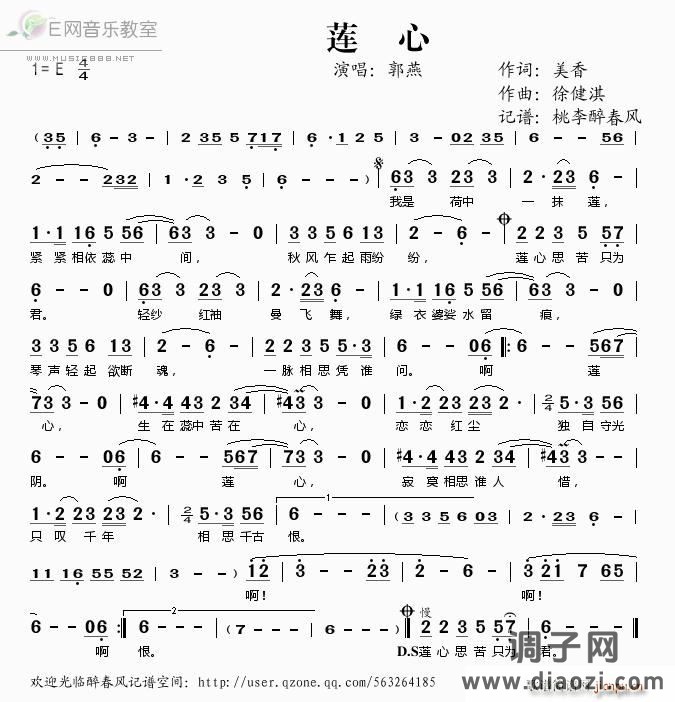 E网音乐教室
莲 心
1=E 4/4
演唱：郭燕
作词：美香
作曲：徐健淇
记谱：桃李醉春风
(35 | 6 - 3 - | 2 235 5 717 | 6 · 1 2 5 | 3 - 0235 | 6 - - 56 |
2 - - 232 | 1 · 2 3 5 | 6 - - - ) | 63 3 23 3 | 2 · 23 6 - |
我是 荷中 一 抹 莲，
1 · 1 16 5 56 | 63 3 - 0 | 3 3 5 6 13 | 2 - 6 - | 2 2 3 5 57 |
紧 紧 相依 蕊 中 间， 秋 风 乍 起 雨纷 纷， 莲 心 思 苦 只为
6 - - - | 63 3 23 3 | 2 · 23 6 - | 1 · 1 16 5 56 | 63 3 - 0 |
君。 轻纱 红袖 曼 飞 舞， 绿 衣 婆娑 水 留 痕，
3 3 5 6 13 | 2 - 6 - | 2 2 3 5 5 · 5 | 6 - - 06 :| 6 - - 567 |
琴 声 轻 起 欲断 魂， 一 脉 相 思 凭 谁 问。 啊 莲
73 3 - 0 | #4 · 4 43 2 34 | #43 3 - 0 | 1 · 2 23 2 - | 2/4 5 · 3 56 |
心， 生 在 蕊中 苦 在 心， 恋 恋 红 尘 独 自 守光
6 - - 06 | 6 - - 567 | 73 3 - 0 | #4 · 4 43 2 34 | #43 3 - 0 |
阴。 啊 莲 心， 寂 寞 相思 谁 人 惜，
1 · 2 23 2 - | 2/4 5 · 3 56 | 6 - - - | (3 3 5 5 6 6 | 2 · 23 2 - |
只 叹 千 年 相 思 千古 恨。
11 16 55 52 | 3 - - - ) | 12 3 - - 23 | 2 - - 6 - | 3 21 7 65 |
啊！ 啊！
6 - - 06 :| 6 - - - | (7 - - - | 6 - - - ) | 慢 2 2 3 5 57 | 6 - - - |
啊 恨。 D.S莲 心 思 苦 只为 君。
欢迎光临醉春风记谱空间：http://user.qzone.qq.com/563264185
调子网
www.diaozi.com